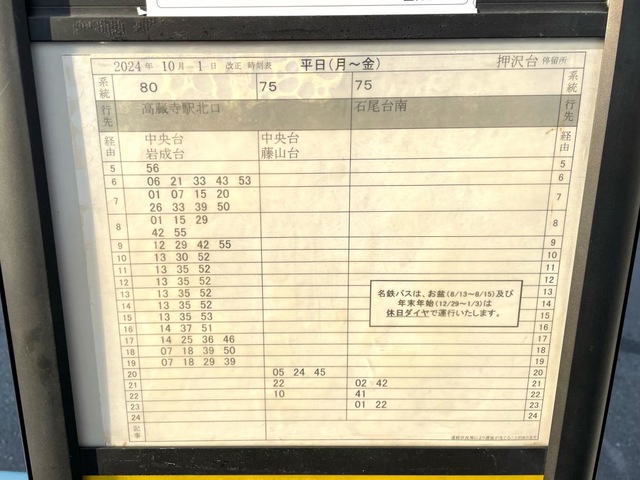 2024年 10月 1日 改正 時刻表 平日(月～金) 押沢台 停留所
系統 80 75 75 系統
行先 高蔵寺駅北口 石尾台南 行先
経由 中央台 中央台 経由
岩成台 藤山台
5 56 5
6 06 21 33 43 53 6
7 01 07 15 20 7
26 33 39 50
8 01 15 29 8
42 55
9 12 29 42 55 9
10 13 30 52 10
11 13 35 52 11
12 13 35 52 12
13 13 35 52 13
14 13 35 52 14
15 13 35 53 15
16 14 37 51 16
17 14 25 36 46 17
18 07 18 39 50 18
19 07 18 29 39 19
20 05 24 45 20
21 22 02 42 21
22 10 41 22
23 01 22 23
24 24
名鉄バスは、お盆(8/13～8/15)及び
年末年始(12/29～1/3)は
休日ダイヤで運行いたします。
記事